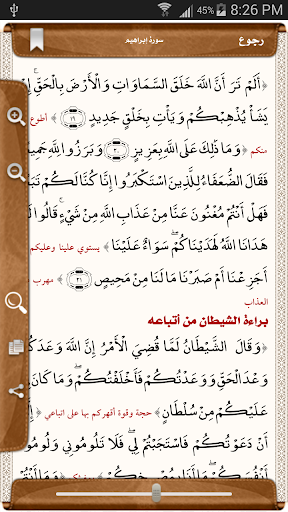 45% 8:26 PM
رجوع
سورة إبراهيم
﴿أَلَمْ تَرَ أَنَّ اللَّهَ خَلَقَ السَّمَاوَاتِ وَالْأَرْضَ بِالْحَقِّ إِن
يَشَأْ يُذْهِبْكُمْ وَيَأْتِ بِخَلْقٍ جَدِيدٍ ١٩﴾ أطوع
منكم ﴿وَمَا ذَلِكَ عَلَى اللَّهِ بِعَزِيزٍ ٢٠ وَبَرَزُوا لِلَّهِ جَمِيعًا
فَقَالَ الضُّعَفَاءُ لِلَّذِينَ اسْتَكْبَرُوا إِنَّا كُنَّا لَكُمْ
فَهَلْ أَنْتُمْ مُغْنُونَ عَنَّا مِنْ عَذَابِ اللَّهِ مِنْ شَيْءٍ قَالُوا
هَدَانَا اللَّهُ لَهَدَيْنَاكُمْ سَوَاءٌ عَلَيْنَا﴾ يستوي علينا وعليكم
أَجَزِعْنَا أَمْ صَبَرْنَا مَا لَنَا مِنْ مَحِيصٍ ٢١﴾ مهرب
العذاب
براءة الشيطان من أتباعه
﴿وَقَالَ الشَّيْطَانُ لَمَّا قُضِيَ الْأَمْرُ إِنَّ اللَّهَ وَعَدَكُمْ
وَعْدَ الْحَقِّ وَوَعَدْتُكُمْ فَأَخْلَفْتُكُمْ وَمَا كَانَ
عَلَيْكُمْ مِنْ سُلْطَانٍ﴾ حجة وقوة أقهركم بها على اتباعي
أَنْ دَعَوْتُكُمْ فَاسْتَجَبْتُمْ لِي فَلَا تَلُومُونِي وَلُومُوا
أَنْفُسَكُمْ مَا أَنَا وَمَا أَنْتُمْ